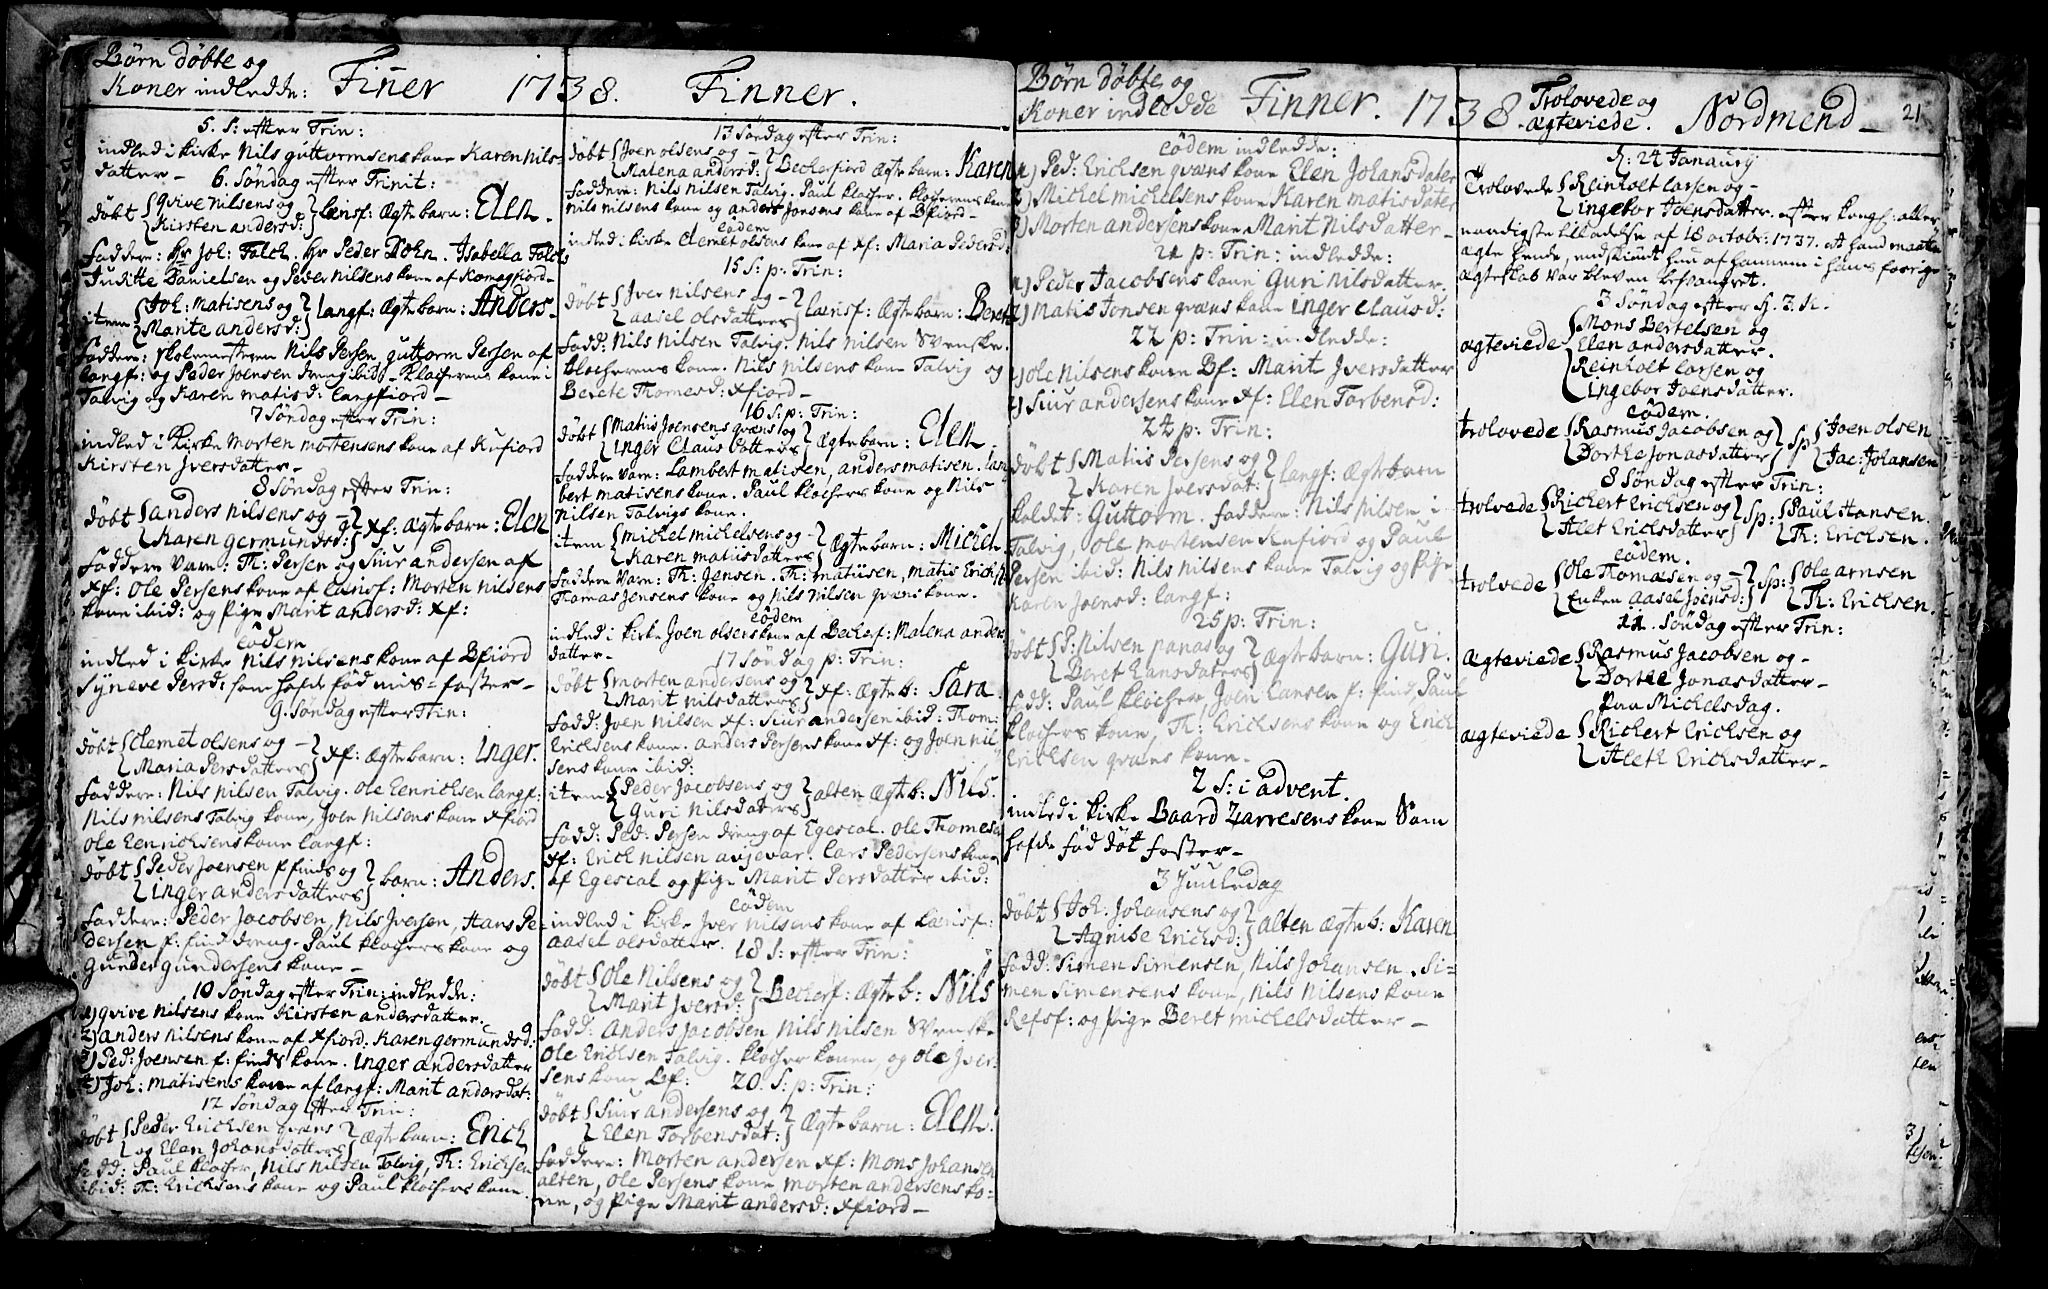 Børn döbte og
Koner indledde: Finer 1738. Finner.
5. S: efter Trin:
indled i kirke Nils guttormsens kone Karen Nils-
datter -
6. Søndag efter Trinit:
döbt {qvive Nilsens og
{Kirsten andersd:} Lænsf: Ægte barn: Elen.
faddere: Hr Joh: Falch. Hr Peder Dohn. Isabella Falch
Juditte Danielsen og Peder Nilsens kone af Komagfiord-
item {Joh: Matisens og
{Marite andersd:} Langf: Ægte barn: Anders-
faddere: skolemesteren Nils Persen, guttorm Persen af
Langf: og Peder Joensen dreng ibid- klockerens kone i
Talvig og Karen matisd: Langfiord-
7 Søndag efter Trin:
indled i kirke Morten mortensens kone af Kufiord
Kirsten Jversdatter-
8 Søndag efter Trin:
döbt {anders Nilsens og -
{Karen germundsd:} Xf: ægte barn: Elen
faddere vare: Th: Persen og Siur andersen af
Xf: Ole Persens kone af Lænsf: Morten Nilsens
kone ibid: og pige Marit andersd: Xf:
eödem
indled i kirke Nils Nilsens kone af Bfiord
Syneve Persd: som hafde fød mis-foster-
9. Søndag efter Trin:
döbt {Clemet olsens og -
{Maria Persdatters} Xf: ægte barn: Inger.
faddere: Nils Nilsen Talvig. Ole Henrichsen langf:
Nils Nilsens Talvig kone, Joen Nilsens kone Xfiord
Ole Henrichsens kone langf:
döbt {Peder Joensen f finds og
{Inger anders datters} barn: Anders.
faddere: Peder Jacobsen, Nils Jversen, Hans Pe-
dersen f: find dreng. Paul klochers kone og
Gunder gundersens kone-
10 Søndag efter Trin: indledde:
1) qvive Nilsens kone Kirsten andersdatter.
2) anders Nilsens kone af Xfiord: Karen germundsd:
3) Ped: Joensen f: finds kone. Inger andersdatter
4) Joh: matisens kone af langf: Marit andersdat:
12 Søndag efter Trin:
döbt {Peder Erichsen qvæns
{og Elen Johans datters} Ægte barn: Erich
fadd: Paul klocher, Nils Nilsen Talvig, Th: Erichsen
ibid: Th: Erichsens kone og Paul klochers kone.
13 Søndag efter Trin:
döbt {Joen olsens og -
{Malena andersd:} Beckerfiord ægte barn: Karen
faddere: Nils Nilsen Talvig. Paul klocher. klocherens kone
Nils Nilsens kone og anders Jonsens kone af Bfiord-
eödem
indled i kirke Clemet olsens kone af Xf: Maria Pedersd:
15 S: p: Trin:
döbt {Jver Nilsens og -
{aasel olsdatters} Lænsf: Ægte barn: Beret
fadd: Nils Nilsen Talvig. Nils Nilsen Svenske.
klocherens kone. Nils Nilsens kone Talvig og
Berete Thomesd: Xfiord-
16 S: p: Trin:
döbt {Matiis Joensens qvæns og
{Inger Claus datters} Ægte barn: Elen.
faddere vare: Lambert matisen, anders matisen. Lam
bert matisens kone. Paul klochers kone og Nils
Nilsen Talvigs kone.
item {michel michelsens og -
{Karen matiisdatters} Ægte barn: Michel.
faddere vare: Th: Jensen. Th: matiisen, matis Erichs:
Thomas Jensens kone og Nils Nilsen qvæns kone.
eödem
indled i kirke Joen olsens kone af Beckerf: Malena anders
datter-
17 Søndag p: Trin:
döbt {morten andersens og
{Marit Nilsdatters} Xf: Ægte b: Sara.
fadd: Joen Nilsen Xf: Siur andersen ibid: Thom:
Erichsens kone. anders Persens kone Xf: og Joen Nil
sens kone ibid:
item {Peder Jacobsens og
{Guri Nilsdatters} alten Ægte b: Nils.
fadd: Ped: Persen dreng af Egescal. Ole Thomesen
Xf: Erich Nilsen avjevar. Lars Pedersens kone
af Egescal og pige Marit Persdatter ibid:
eödem
indled i kirke Jver Nilsens kone af Lænsf:
aasel olsdatter.
18 S: efter Trin:
döbt {Ole Nilsens og
{Marit Jversd:} Beckerf: Ægte b: Nils
fadd: Anders Jacobsen, Nils Nilsen Svenske
Ole Erichsen Talvig. klocher konen, og Ole Jver-
sens kone Bf:
20. S: p: Trin:
döbt {Siur andersens og
{Elen Torbensdat:} Ægte barn: Elen.
faddere: Morten andersen Xf: Mons Johansen
alten, Ole Persens kone morten andersens ko-
ne, og pige Marit andersd: Xfiord-
Børn döbte og
Koner indledde Finner. 1738.
eödem indledde:
1) Ped: Erichsen qvæns kone Elen Johansdater
2) Michel michelsens kone Karen matisdater
3) Morten andersens kone Marit Nilsdatter-
21 p: Trin: indledde:
1) Peder Jacobsens kone Guri Nilsdatter.
2) Matis Jonsen qvæns kone inger Clausd:
22 p: Trin: indledde:
1) ole Nilsens kone Bf: Marit Jversdatter
2) Siur andersens kone Xf: Elen Torbensd:
24 p: Trin:
döbt {Matiis Persens og
{Karen Jversdat:} langf: Ægte barn
kaldet: Guttorm. faddere: Nils Nilsen i
Talvig, Ole mortensen Kufiord og Paul
Persen ibid: Nils Nilsens kone Talvig og pige
Karen Joensd: langf:
25 p: Trin:
döbt {P: Nilsen panas og
{Beret Hansdaters} Ægte barn: Guri.
fadd: Paul klocher, Joen Hansen f: find, Paul
klochers kone, Th: Erichsens kone og Erich
Erichsen qvæns kone-
2 S: i advent.
indled i kirke Baard Zarresens kone Som
hafde fød döt foster-
3 Juuledag
döbt {Joh. Johansens og
{Agnise Erichsd:} alten ægte b: Karen
fadd: Simen Simensen, Nils Johansen. Si-
men Simensens kone, Nils Nilsens kone
Refsf: og pige Beret michelsdatter-
Trolovede og
ægteviede. Nordmend- 21
d: 24 Januarij
Trolovede {Reinholt Larsen og -
{ingebor Joensdatter. efter kongl: aller
naadigste tilladelse af 18 octobr: 1737. at hand maatte
ægte hende, endskiønt hun af hannem i hans forrige
ægteskab var bleven besvangret.
3 Søndag efter H: 3 K:
ægteviede {Mons Bertelsen og
{Elen andersdatter.
{Reinholt Larsen og
{ingebor Joensdatter.
eödem.
trolovede {Rasmus Jacobsen og
{Dorthe Jonasdatter} Sp {Joen olsen
{Jac: Johansen
8 Søndag efter Trin:
trolvede {Richert Erichsen og
{Alet Erichsdatter} Sp: {Paul Hansen.
{Th: Erichsen.
eödem.
trolvede {Ole Thomæsen og -
{Enken Aasel Joensd:} Sp: {Ole arnsen
{Th: Erichsen.
11. Søndag efter Trin:
ægteviede {Rasmus Jacobsen og -
{Dorthe Jonasdatter-
Paa Michelsdag.
ægteviede {Richert Erichsen og
{Aleth Erichsdatter-